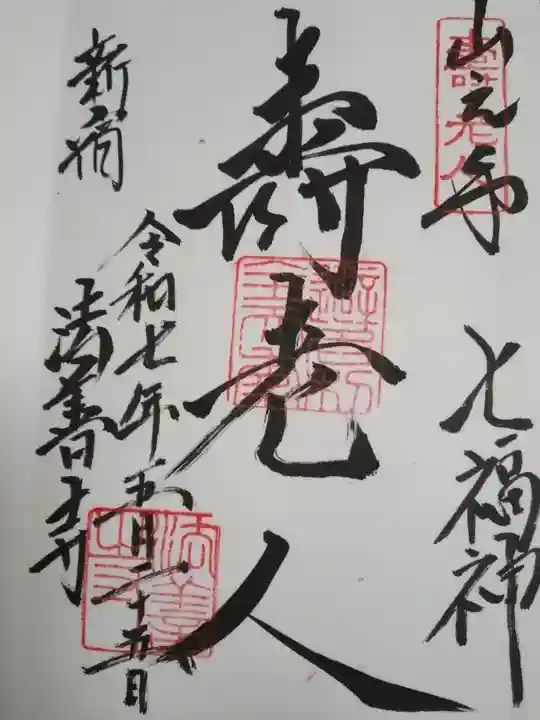 山之手 七福神
寿老人
令和七年五月二十五日
新宿 法善寺